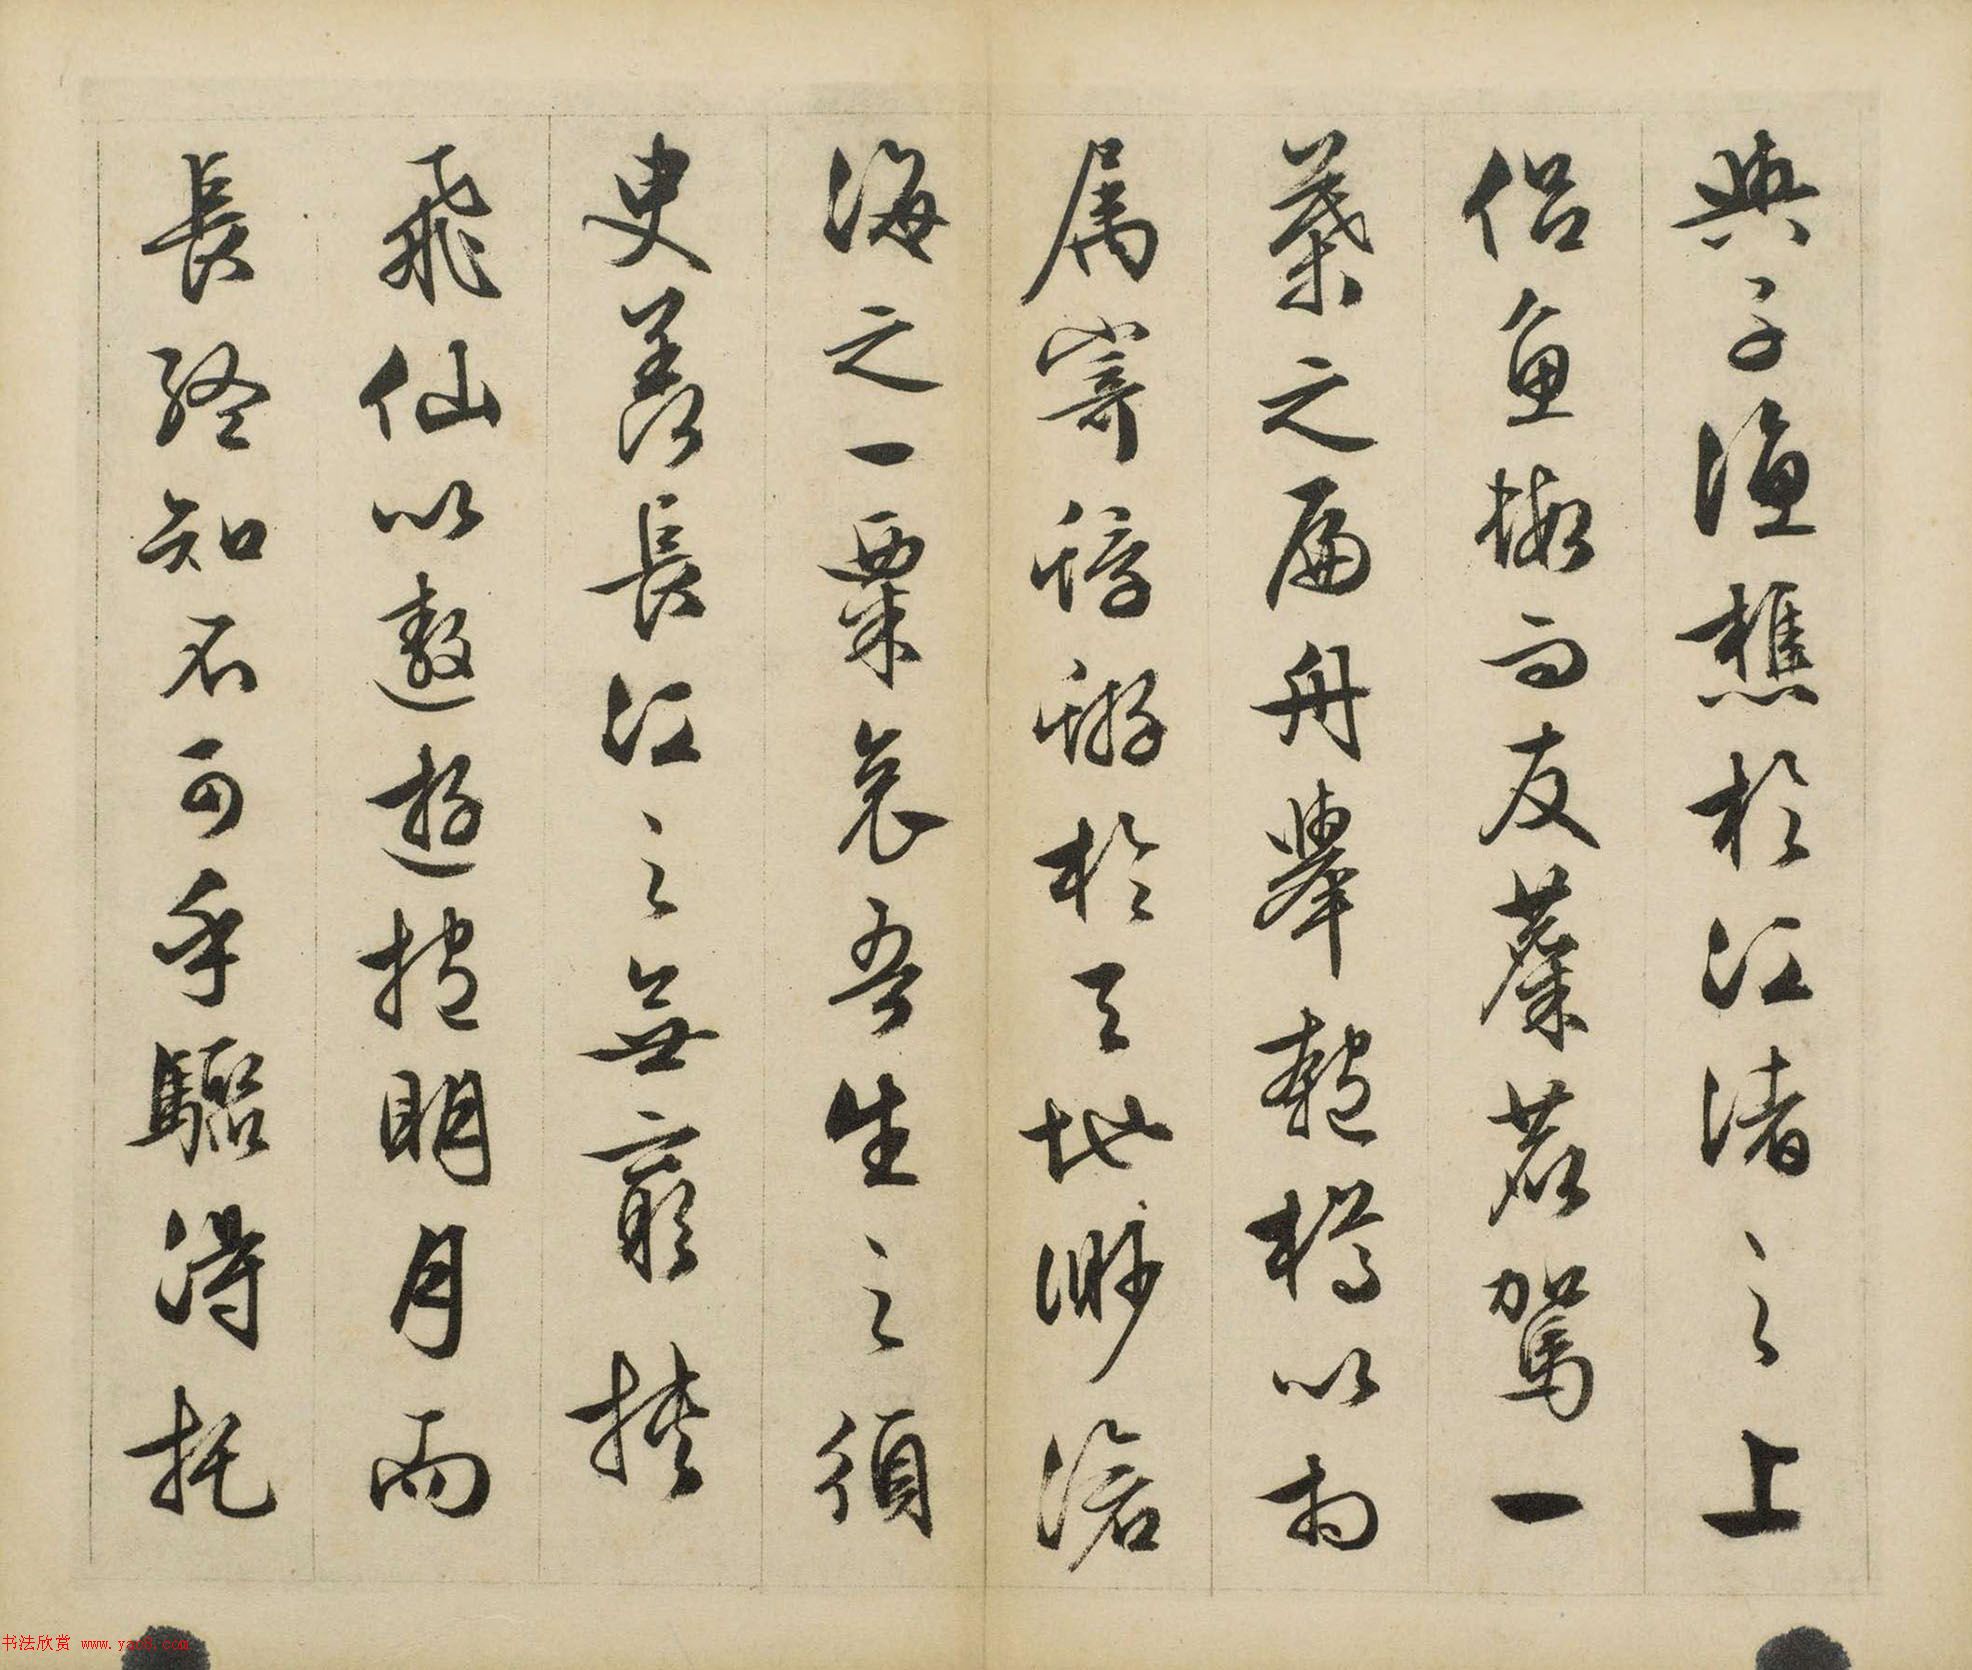 與子漁樵於江渚之上
侶魚蝦而友麋鹿駕一
葉之扁舟舉匏樽以相
屬寄蜉蝣於天地渺滄
海之一粟哀吾生之須
臾羨長江之無窮挾
飛仙以遨遊抱明月而
長終知不可乎驟得托
书法欣赏 www.yac8.com